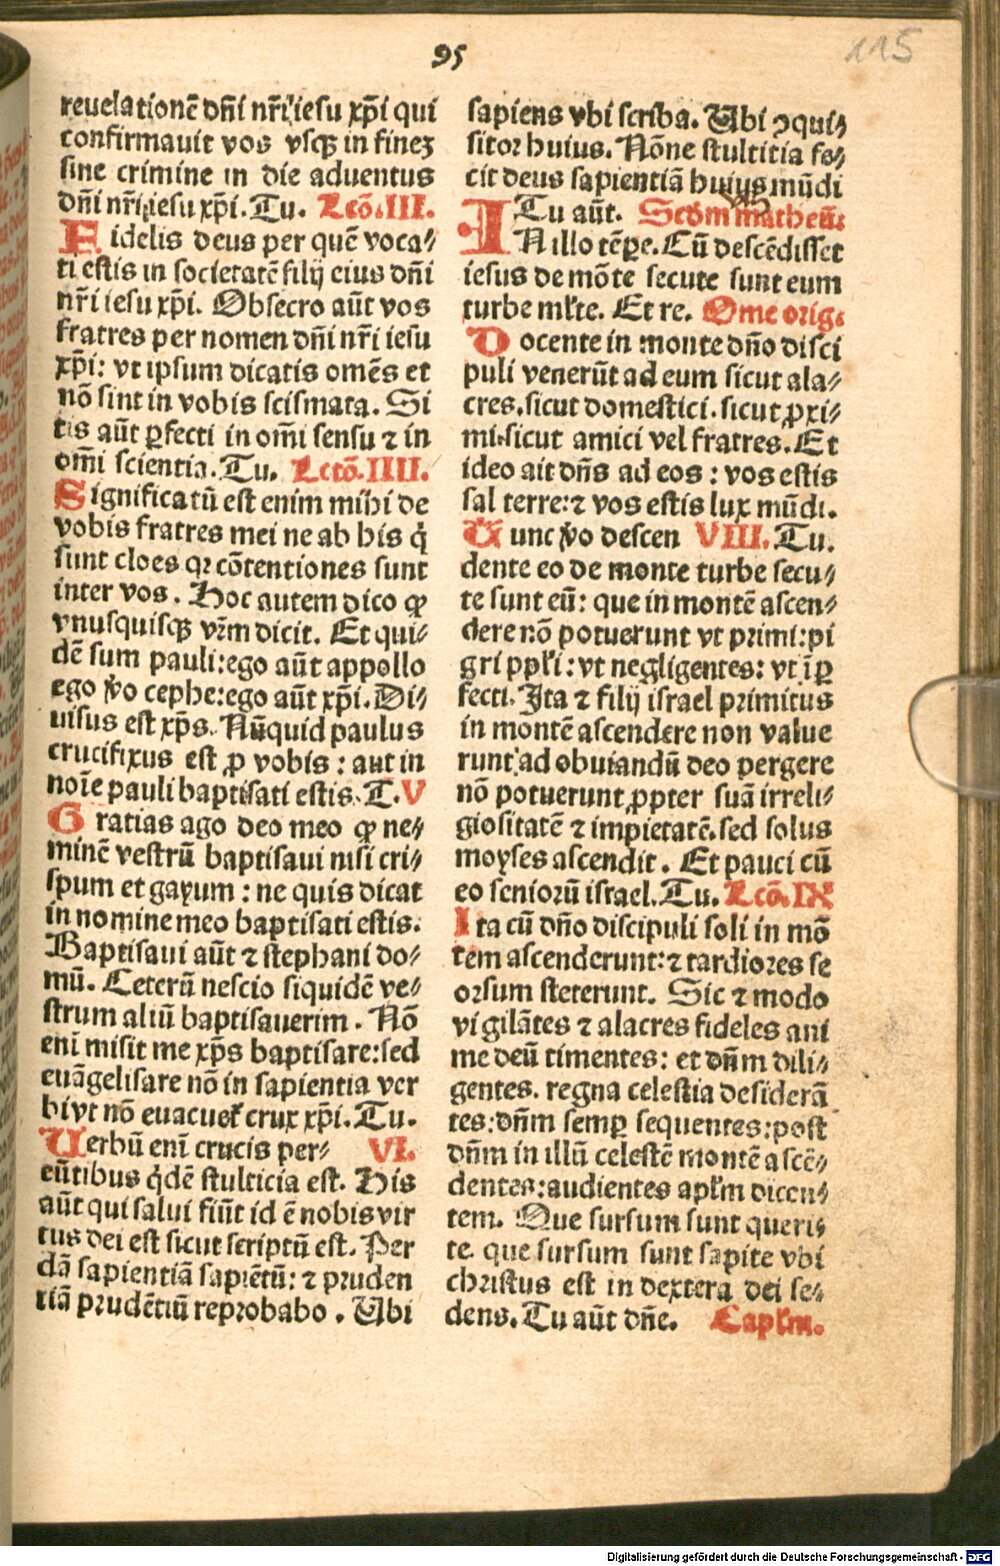 95
115
reuelationē dn̄i nr̄i iesu xp̄i qui
confirmauit vos vsqꝫ in fineꝫ
sine crimine in die aduentus
dn̄i nr̄i iesu xp̄i. Tu. Lctō. III.
Fidelis deus per quē voca⸗
ti estis in societatē filij eius dn̄i
nr̄i iesu xp̄i. Obsecro aūt vos
fratres per nomen dn̄i nr̄i iesu
xp̄i: vt ipsum dicatis omēs et
nō sint in vobis scismata. Si
tis aūt ꝑfecti in om̄i sensu ⁊ in
om̄i scientia. Tu. Lctō. IIII.
Significatū est enim mihi de
vobis fratres mei ne ab his q̇
sunt cloes qꝛ cōtentiones sunt
inter vos. Hoc autem dico ꝙ
vnusquisqꝫ vr̄m dicit. Et qui⸗
dē sum pauli: ego aūt appollo
ego v̄o cephe: ego aūt xp̄i. Di⸗
uisus est xp̄s. Nūquid paulus
crucifixus est ꝓ vobis: aut in
noīe pauli baptisati estis. T. V
Gratias ago deo meo ꝙ ne⸗
minē vestrū baptisaui nisi cri⸗
spum et gayum: ne quis dicat
in nomine meo baptisati estis.
Baptisaui aūt ⁊ stephani do⸗
mū. Ceterū nescio siquidē ve⸗
strum aliū baptisauerim. Nō
enī misit me xp̄s baptisare: sed
euāgelisare nō in sapientia ver
bi vt nō euacuet̄ crux xp̄i. Tu.
Uerbū enī crucis per⸗ VI.
eūtibus q̇dē stulticia est. His
aūt qui salui fiūt id ē nobis vir
tus dei est sicut scriptū est. Per
dā sapientiā sapiētū: ⁊ pruden
tiā prudētiū reprobabo. Ubi
sapiens vbi scriba. Ubi ꝯqui⸗
sitor huius. Nōne stultitia fe⸗
cit deus sapientiā huius mūdi
Tu aūt. Scd̄m matheū.
IN illo tēꝑe. Cū descēdisset
iesus de mōte secute sunt eum
turbe ml̄te. Et re. Ome orig.
Docente in monte dn̄o disci
puli venerūt ad eum sicut ala⸗
cres. sicut domestici. sicut ꝓxi⸗
mi. sicut amici vel fratres. Et
ideo ait dn̄s ad eos: vos estis
sal terre: ⁊ vos estis lux mūdi.
Tunc v̄o descen VIII. Tu.
dente eo de monte turbe secu⸗
te sunt eū: que in montē ascen⸗
dere nō potuerunt vt primi: pi
gri ppl̄i: vt negligentes: vt īꝑ
fecti. Ita ⁊ filij israel primitus
in montē ascendere non value
runt: ad obuiandū deo pergere
nō potuerunt ꝓpter suā irreli⸗
giositatē ⁊ impietatē. sed solus
moyses ascendit. Et pauci cū
eo seniorū israel. Tu. Lcō. IX
Ita cū dn̄o discipuli soli in mō
tem ascenderunt: ⁊ tardiores se
orsum steterunt. Sic ⁊ modo
vigilātes ⁊ alacres fideles ani
me deū timentes: et dn̄m dili⸗
gentes. regna celestia desiderā
tes: dn̄m semꝑ sequentes: post
dn̄m in illū celestē montē ascē⸗
dentes: audientes apl̄m dicen⸗
tem. Que sursum sunt queri⸗
te. que sursum sunt sapite vbi
christus est in dextera dei se⸗
dens. Tu aūt dn̄e. Capl̄m.
Digitalisierung gefördert durch die Deutsche Forschungsgemeinschaft - DFG